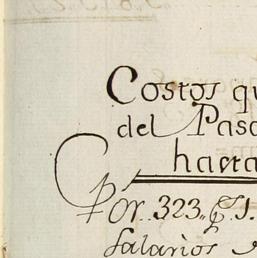 Costos qu
del Pasa
hasta
Por 323„ ps 1.
Salarios